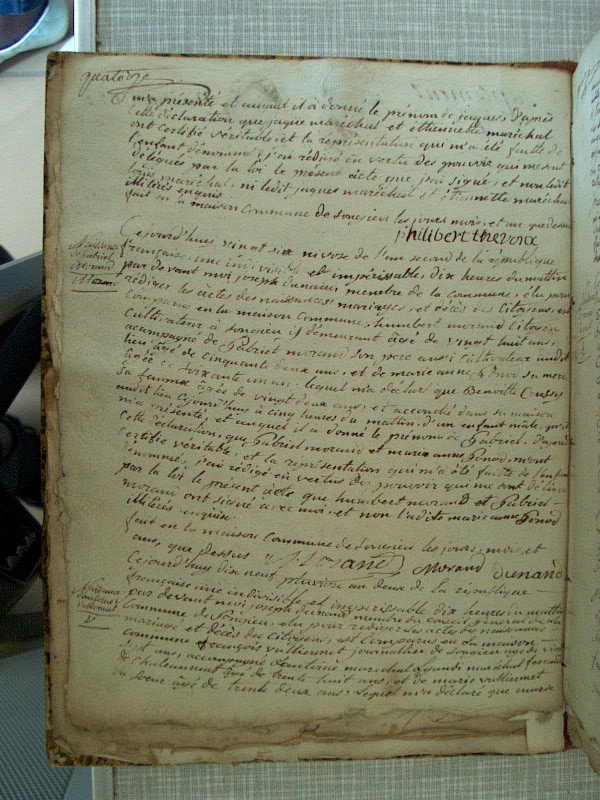 quatorze
m'a présenté et auquel il a donné le prénom de jaques, d'après
Cette déclaration que jaque maréchal et éthiennette maréchal
ont certifié véritable, et la représentation qui m'a été faitte de
l'enfant dénommé, j'ai rédigé en vertu des pouvoir qui me sont
délégués par la loi le présent acte que j'ai signé, et non ledit
maréchal, ni ledit jaques maréchal et éthiennette maréchal
illitérés enquis
fait en la maison Commune de Songieu les jours, mois, et an que dessus
philibert thevenoz
Naissance
de Gabriel
Morand
Cejourd'huy vingt six nivose de l'an second de la république
française, une indivisible et impérissable, dix heures du mattin
par devant moi joseph dunand membre de la commune, élu pour
rédiger les actes des naissances, mariages, et décès des Citoyens, est
Comparus en la maison Commune, humbert morand Citoyen
Cultivateur à Songieu y demeurant âgé de vingt huit ans,
accompagné de Gabriel morand son père aussi Cultivateur audit
lieu âgé de cinquante deux ans, et de marie anne sa mère
âgée de soixante un an, lequel m'a déclaré que Benoitte
sa femme âgée de vingt deux ans, et accouché dans sa maison
audit lieu Cejourd'huy à cinq heures du mattin, d'un enfant mâle, qu'il
m'a présenté, et auquel il a donné le prénom de Gabriel. D'après
Cette déclaration, que Gabriel morand et marie anne mont
Certifié véritable, et la représentation qui m'a été faitte de l'enfant
dénommé, j'ai rédigé en vertus des pouvoir qui me sont délégués
par la loi le présent acte que humbert morand et Gabriel
morand ont signé avec moi, et non laditte marie anne
illitérée enquise
fait en la maison Commune de Songieu les jours, mois, et
ans, que dessus Morand Morand Dunand
Naissance
Vulliermet
V
Cejourd'huy dix neuf pluviose an deux de la république
française une indivisible et impérissable dix heures du mattin
par devant moi joseph dunand membre du conseil général de la
Commune de Songieu, élu pour rédiger les actes des naissances
mariage et décès des citoyens, est Comparus en la maison
commune françois vulliermet journallier de Songieu âgé de vingt
ans, accompagné d'antoine marechal maréchal ferrand
de Chateauneuf âgé de trente huit ans, et de marie vulliermet
sa soeur âgé de trente deux ans, lequel m'a déclaré que marie